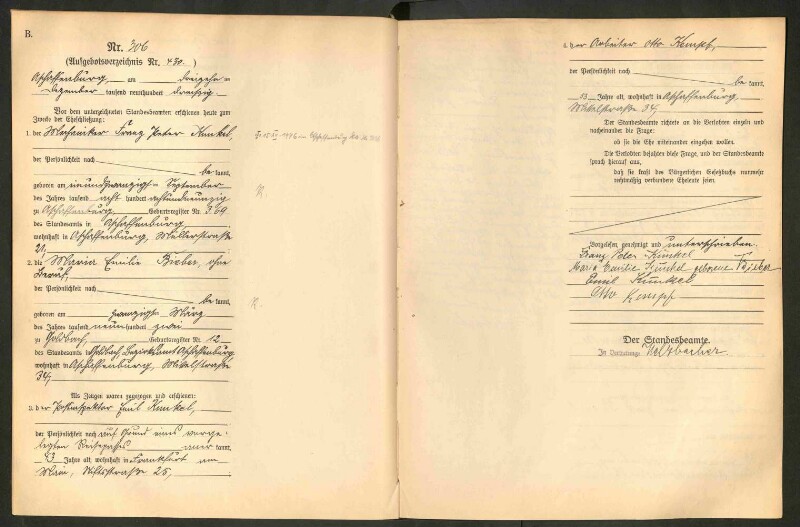 B.
Nr. 306
(Aufgebotsverzeichnis Nr. 430.)
Aschaffenburg, am dreizehnten
Dezember tausend neunhundert dreißig
Vor dem unterzeichneten Standesbeamten erschienen heute zum
Zwecke der Eheschließung:
1. der Mechaniker Franz Peter Kunkel,
der Persönlichkeit nach
be kannt,
geboren am neunundzwanzigsten September
des Jahres tausend acht hundert neunzig
zu Aschaffenburg, Geburtsregister Nr. 369
des Standesamts in Aschaffenburg
wohnhaft in Aschaffenburg, Müllerstraße
21,
2. die Maria Emilie Bieber, ohne
Beruf,
der Persönlichkeit nach
be kannt,
geboren am zwanzigsten März
des Jahres tausend neunhundert zwei
zu Goldbach, Geburtsregister Nr. 12
des Standesamts in Goldbach Bezirksamt Aschaffenburg
wohnhaft in Aschaffenburg,
34,
Als Zeugen waren zugezogen und erschienen:
3. der Postinspektor Emil Kunkel,
der Persönlichkeit nach auf Grund eines vorge-
legten Reisepasses aner kannt,
43 Jahre alt, wohnhaft in Frankfurt am
Main, Stiftsstraße 25,
4. der Arbeiter Otto Kempf,
der Persönlichkeit nach be kannt,
Jahre alt, wohnhaft in Aschaffenburg
34,
Der Standesbeamte richtete an die Verlobten einzeln und
nacheinander die Frage:
ob sie die Ehe miteinander eingehen wollen.
Die Verlobten bejahten diese Frage, und der Standesbeamte
sprach hierauf aus,
daß sie kraft des Bürgerlichen Gesetzbuchs nunmehr
rechtmäßig verbundene Eheleute seien.
Vorgelesen, genehmigt und unterschrieben
Franz Peter Kunkel
Maria Emilie Kunkel geborene Bieber
Emil Kunkel
Otto Kempf
Der Standesbeamte.
In Vertretung: